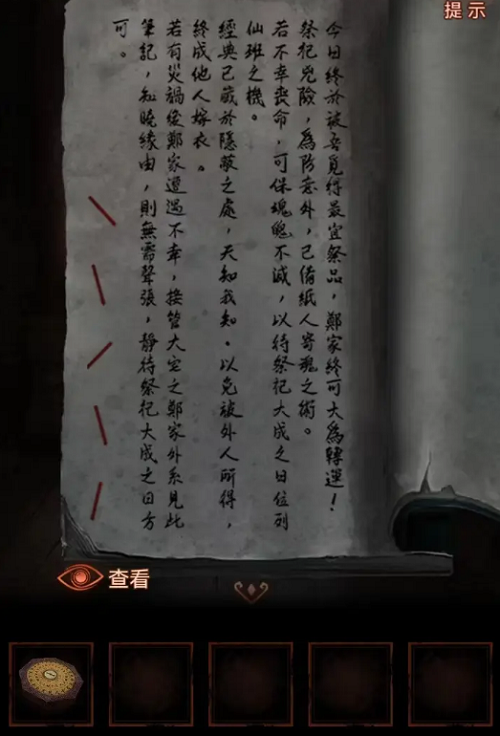 提示
今日終於被吾覓得最宜祭品，鄭家終可大為轉運！
祭祀兇險，為防意外，已備紙人寄魂之術。
若不幸喪命，可保魂魄不滅，以待祭祀大成之日位列
仙班之機。
經典已藏於隱蔽之處，天知我知。以免被外人所得，
終成他人嫁衣。
若有災禍使鄭家遭遇不幸，接管大宅之鄭家外系見此
筆記，知曉緣由，則無需聲張，靜待祭祀大成之日方
可。
查看